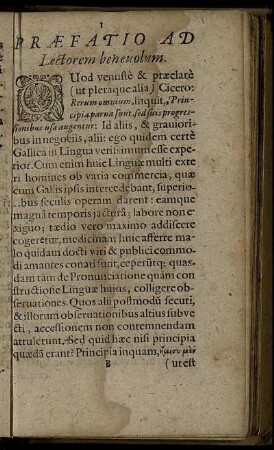 1
PRÆFATIO AD
Lectorem beneuolum.
QVod venustè & præclarè
(ut pleraque alia) Cicero:
Rerum omnium, inquit, Prin-
cipia parua sunt, sed suis progres-
sionibus usa augentur: Id aliis, & grauiori-
bus in negociis, alii: ego quidem certè
Gallica in Lingua verissimum esse expe-
rior. Cùm enim huic Linguæ multi exte
ri homines ob varia commercia, quæ
eum Gallis ipsis intercedebant, superio-
bus seculis operam darent: eamque
magna temporis jactura; labore non e-
xiguo; tædio vero maximo addiscere
cogerētur, medicinam huic afferre ma-
lo quidam docti viri & publici commo-
di amantes conati sunt, cœperūtq; quas-
dam tàm de Pronunciatione quàm con-
structione Linguæ huius, colligere ob-
seruationes. Quos alii postmodū secuti,
& illorum obseruationibus altius subve
cti, accessionem non contemnendam
attulerunt. Sed quid hæc nisi principia
quædā erant? Principia inquam, ἥμισυ μὲν
B (ut est